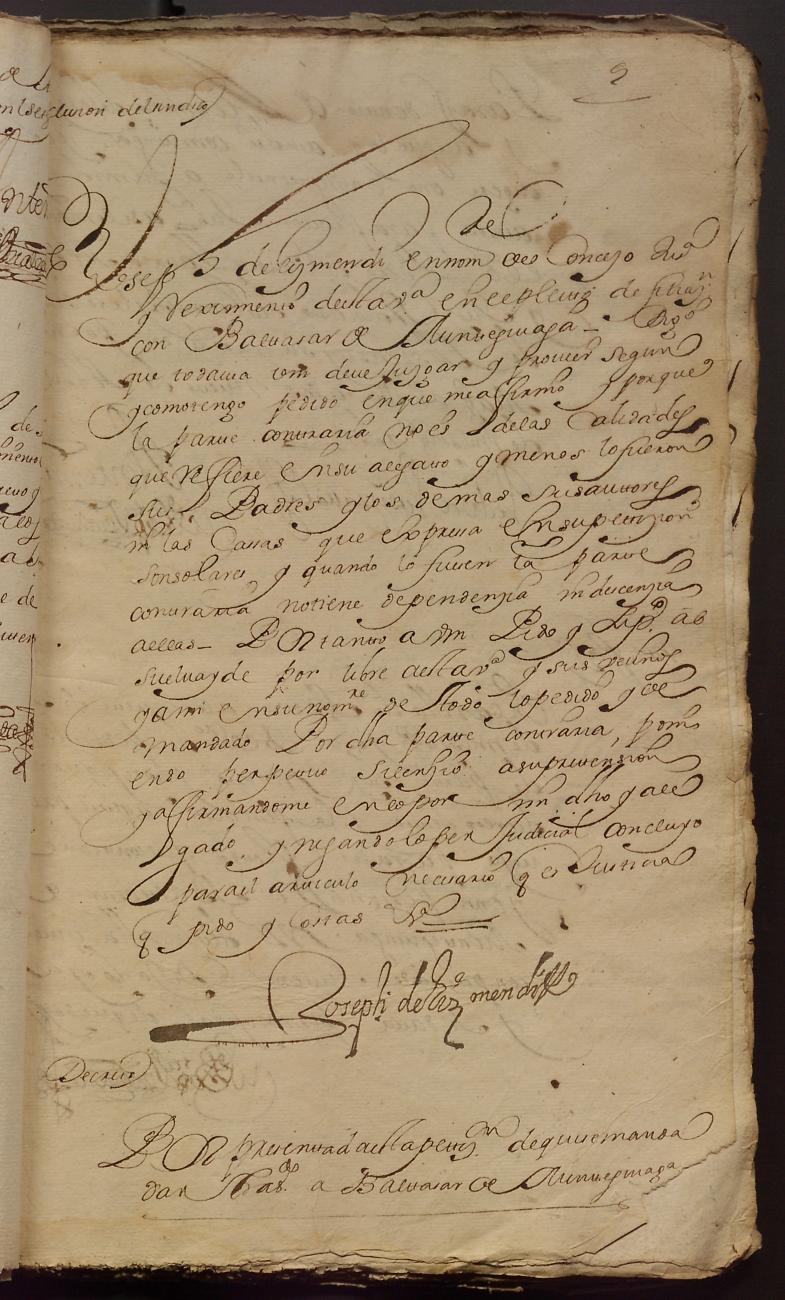 2
de
Joseph de Lizmendi en nom de el Conzejo Just
y Reximento desta va en el pleito de filian
con Baltasar de Muniesquiaga – Digo
que todavia vm deve Juzgar y proveer segun
y como tengo pedido en que me afirmo y porque
la parte contraria no es de las Calidades
que Refiere en su alegato y menos lo fueron
sus Padres y los demas sus autores
ni las Casas que expresa en su peticion
son solares, y quando lo fuesen la parte
contraria no tiene dependenzia ni descenzia
de ellas – Por tanto a vm Pido y supco ab
suelva y de por libre a esta va y sus vecinos
y a mi en su nomre de todo lo pedido y de
mandado Por dha parte contraria, poni
endo perpetuo silenzio a su pretension
y afirmandome en lo por mi dho y ale
gado, y negando lo perJudicial concluyo
para el articulo necesario q es Justicia
q pido y costas Va
Joseph de Lizmendi
Decreto
Por presentada esta petizn de que se manda
dar traso a Baltasar de Muniesquiaga